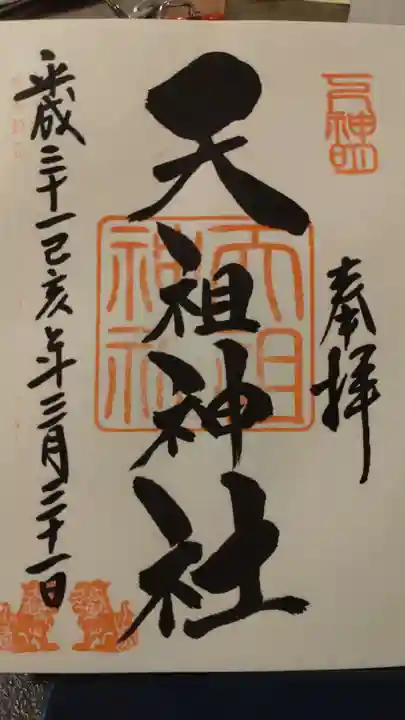 奉拝
天祖神社
天祖神社
平成三十一己亥年三月三十一日